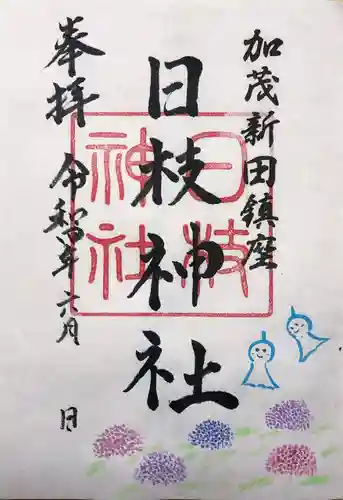 加茂新田鎮座
日枝神社
日枝
神社
奉拝
令和年六月 日